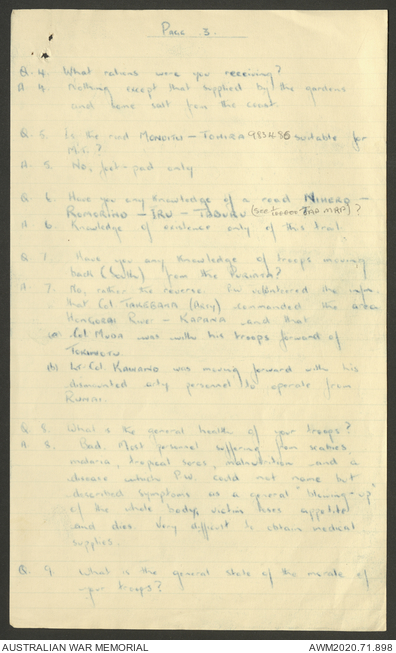 PAGE 3.
Q. 4. What rations were you receiving?
A 4. Nothing except that supplied by the gardens
and some salt from the coast.
Q. 5. Is the road MONOITU - 985486 suitable for
M.T.?
A 5. No, foot-pad only
Q. 6. Have you any knowledge of a road NIHERO -
RUMORINO - IRU - TABURU (SEE MAP)?
A 6. Knowledge of existence only of this trail.
Q 7. Have you any knowledge of troops moving
back (South) from the PURIATA?
A 7. No, rather the reverse. P.W. volunteered the infm.
that Col (Arty) commanded the area
HONGORAI River - KAPANA and that
(a) Col MUDA was with his troops forward of
(b) Lt-Col. KAWANO was moving forward with his
dismounted arty personnel to operate from
RUHAI.
Q 8. What is the general health of your troops?
A 8. Bad. Most personnel suffering from scabies,
malaria, tropical sores, malnutrition and a
disease which P.W. could not name but
described symptoms as a general "blowing-up"
of the whole body, victim loses appetite
and dies. Very difficult to obtain medical
supplies.
Q. 9. What is the general state of the morale of
your troops?
AUSTRALIAN WAR MEMORIAL
AWM2020.71.898